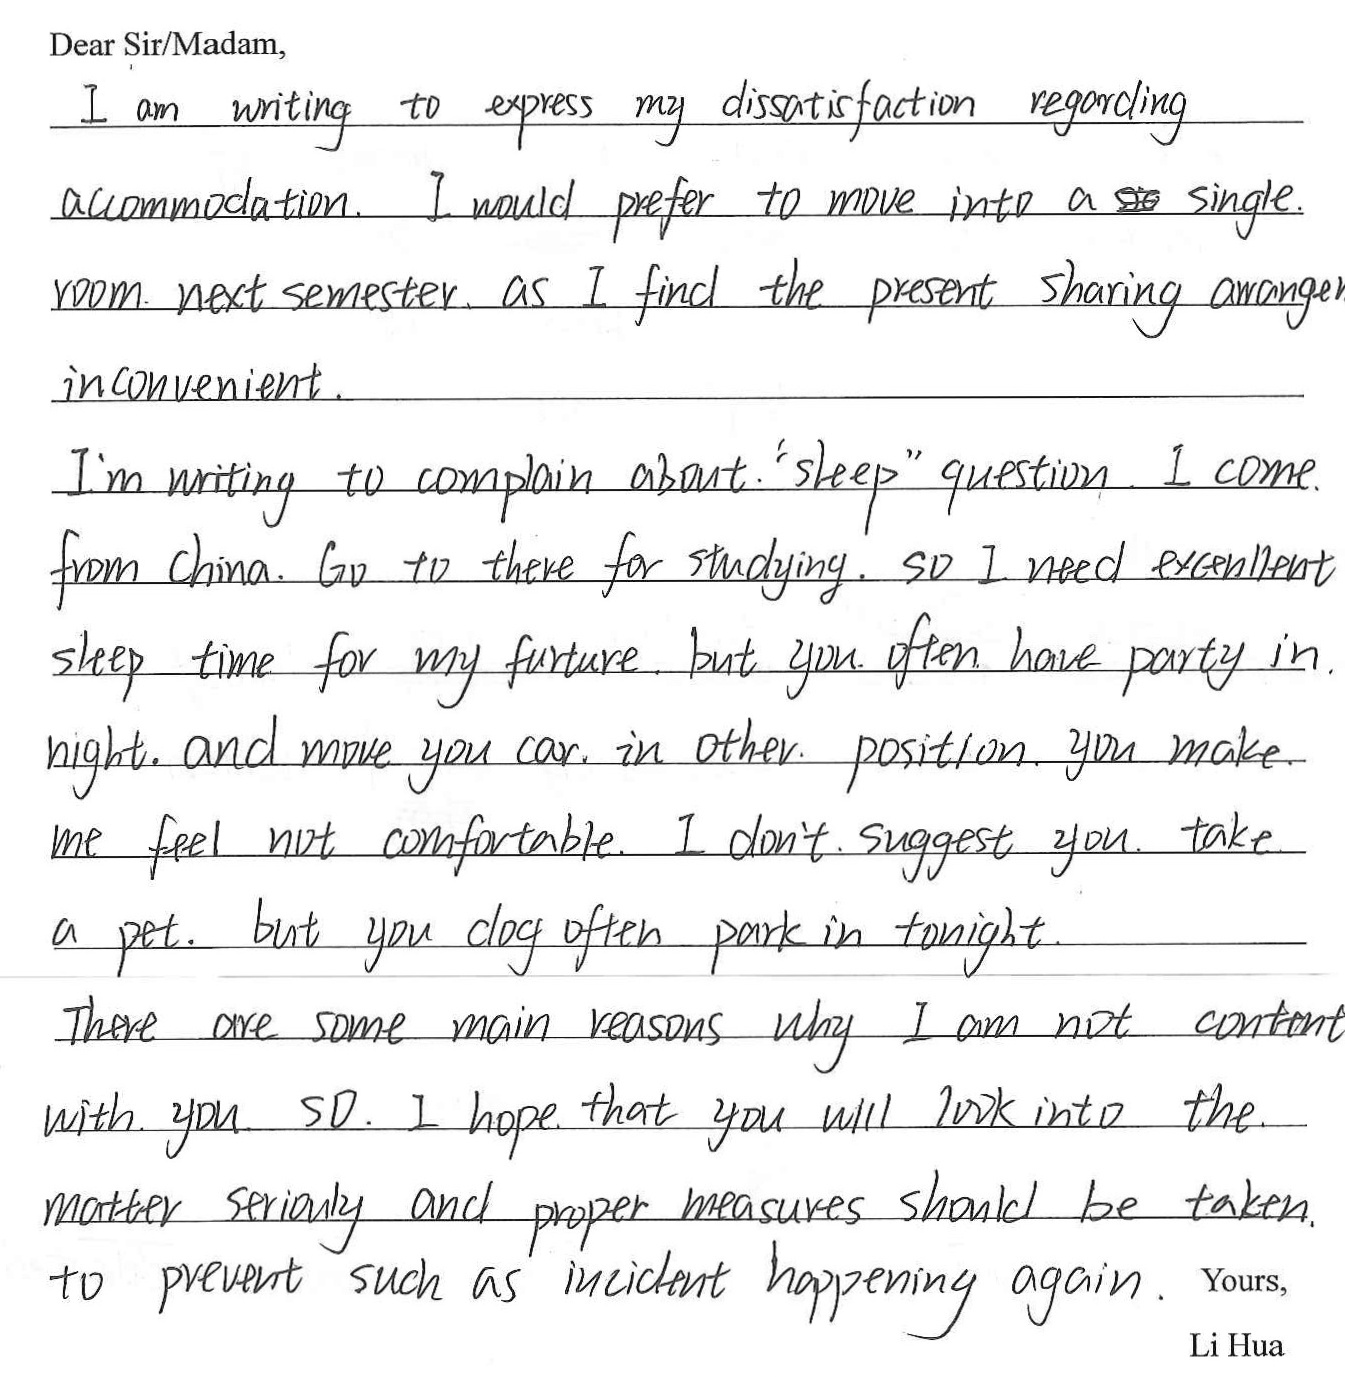 Dear Sir/Madam,
I am writing to express my dissatisfaction regarding
accommodation. I would prefer to move into a single.
room. next semester. as I find the present sharing arrangem
inconvenient.
I'm writing to complain about. "sleep" question. I come.
from China. Go to there for studying. so I need excenllent
sleep time for my furture. but you. often have party in.
night. and move you car. in other. position. you make.
me feel not comfortable. I don't. suggest you. take
a pet. but you dog often park in tonight.
There are some main reasons why I am not content
with. you so. I hope. that you will look into the.
matter seriouly and proper measures should be taken.
to prevent such as incident happening again. Yours,
Li Hua